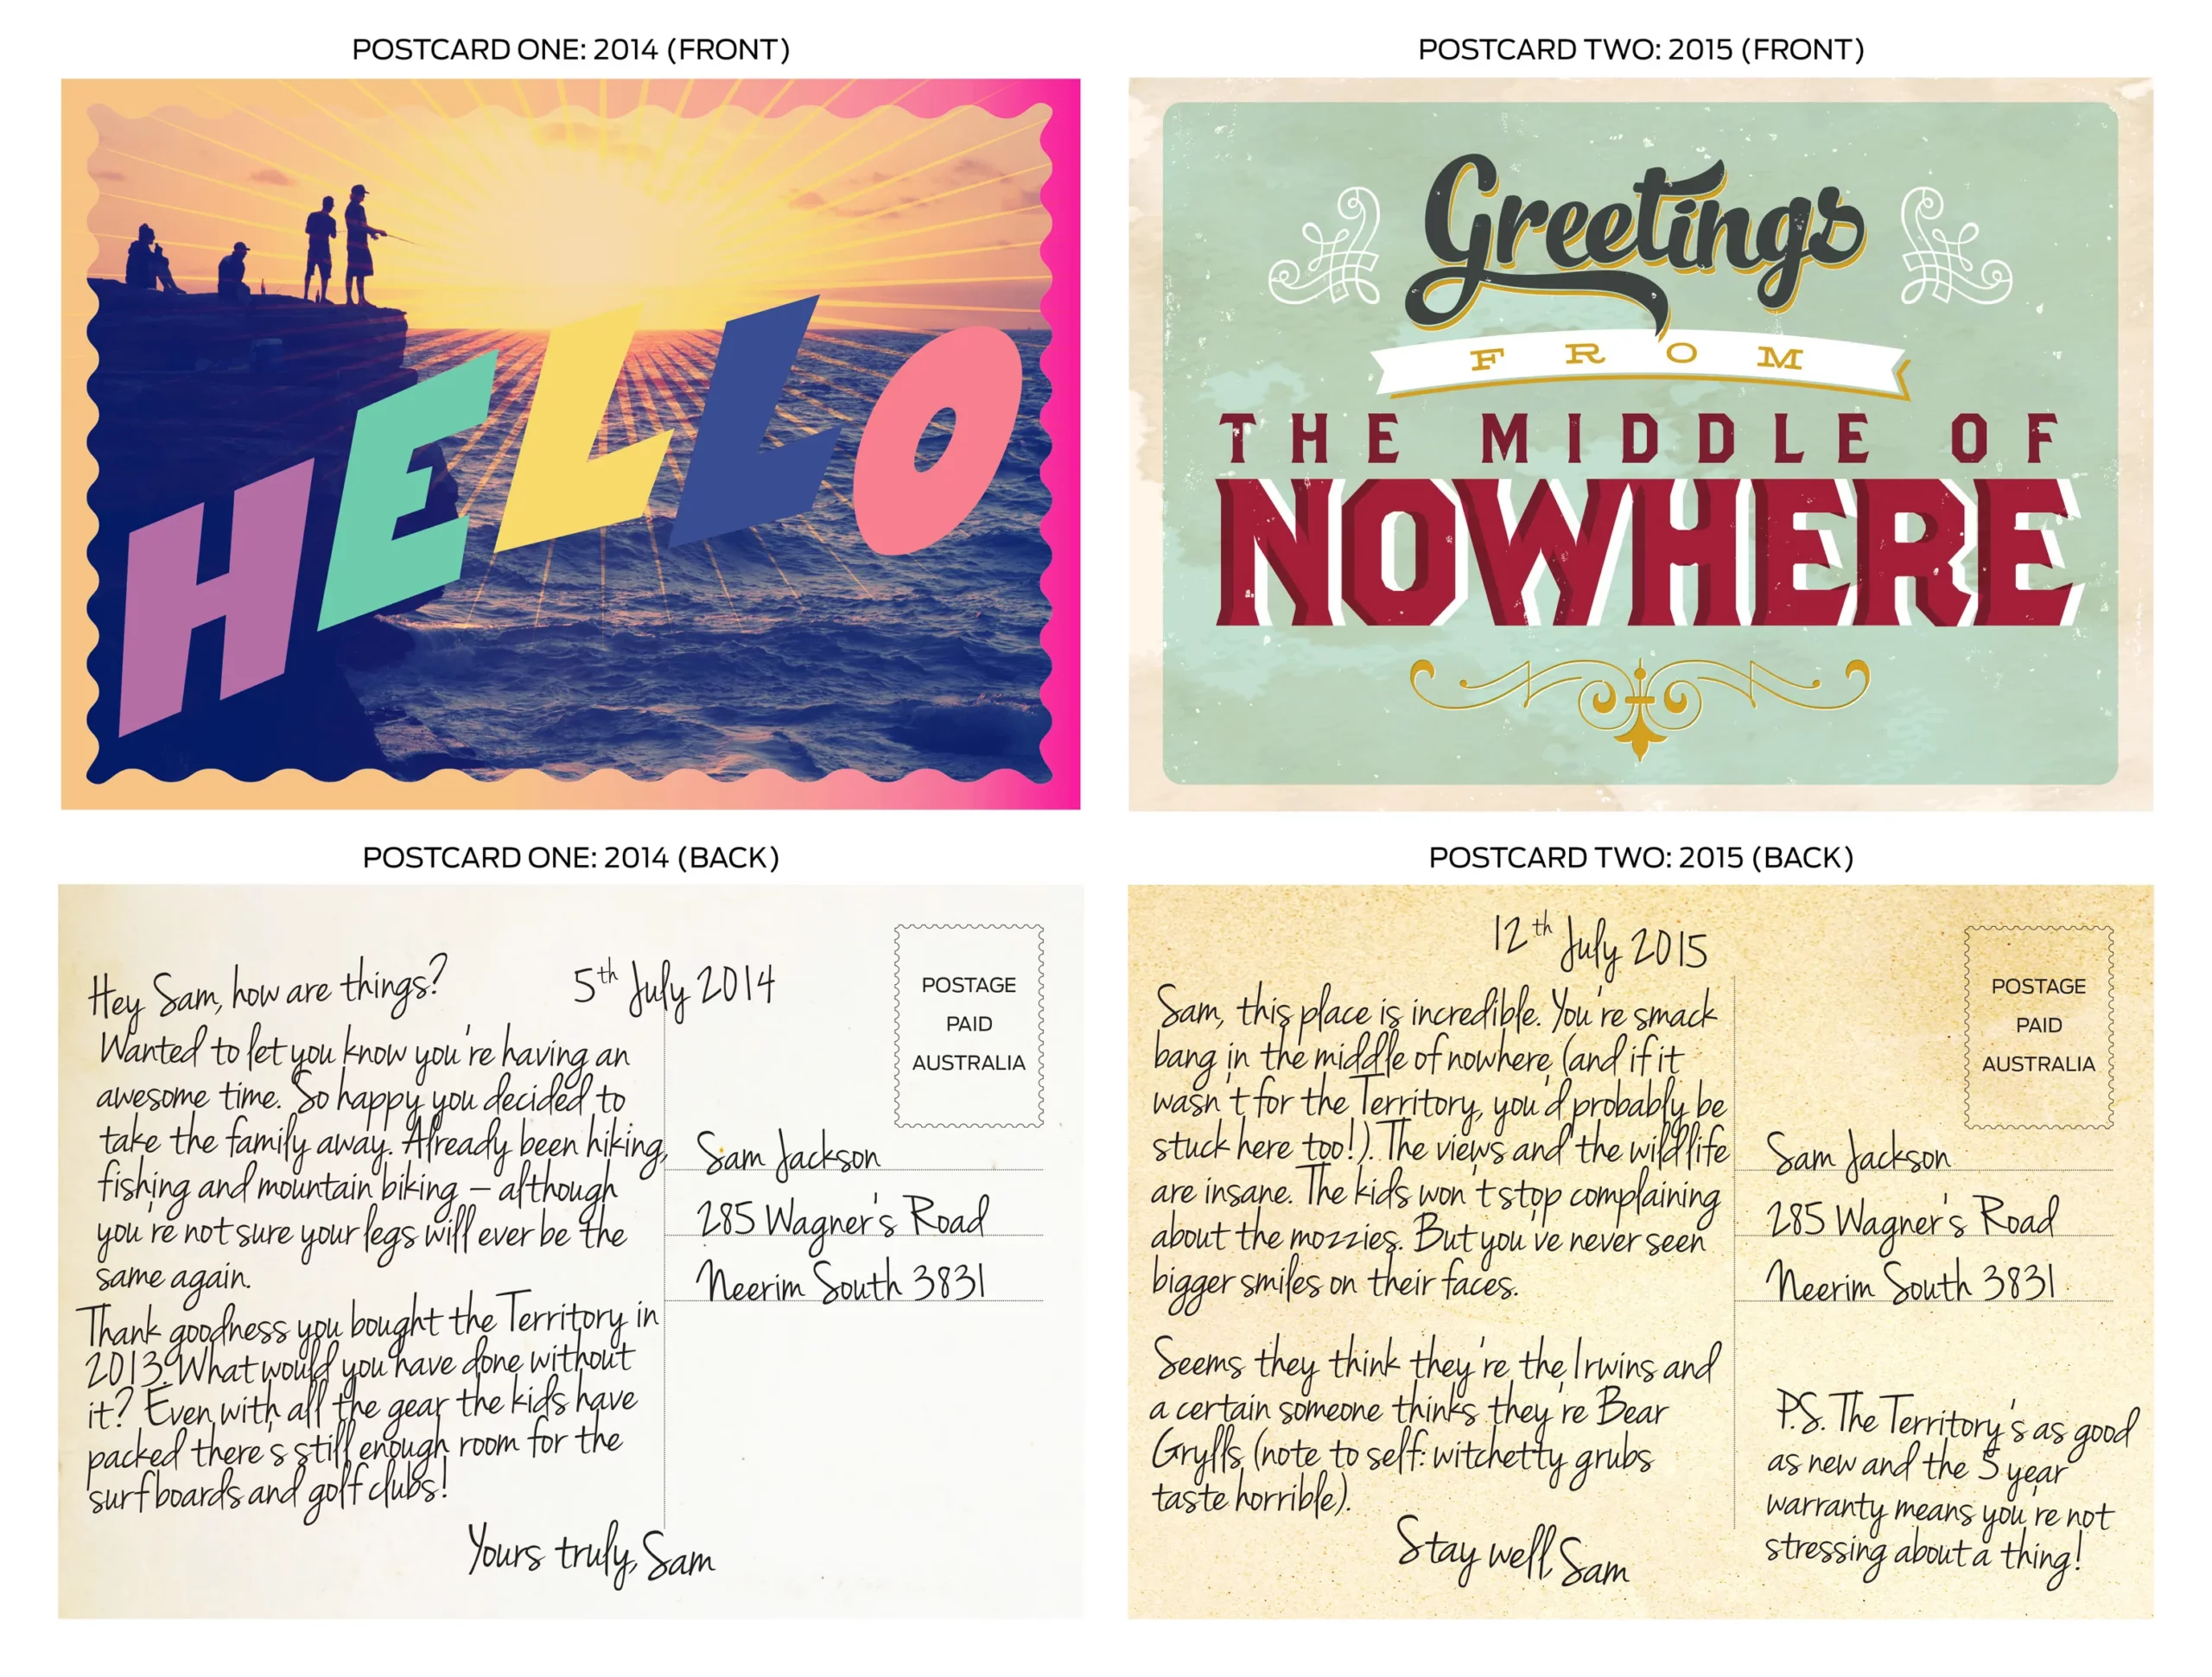 POSTCARD ONE: 2014 (FRONT)
HELLO
POSTCARD TWO: 2015 (FRONT)
Greetings
FROM
THE MIDDLE OF
NOWHERE
POSTCARD ONE: 2014 (BACK)
5th July 2014
Hey Sam, how are things?
Wanted to let you know you're having an
awesome time. So happy you decided to
take the family away. Already been hiking,
fishing and mountain biking – although
you're not sure your legs will ever be the
same again.
Thank goodness you bought the Territory in
2013. What would you have done without
it? Even with all the gear the kids have
packed there's still enough room for the
surfboards and golf clubs!
Yours truly, Sam
POSTAGE
PAID
AUSTRALIA
Sam Jackson
285 Wagner's Road
Neerim South 3831
POSTCARD TWO: 2015 (BACK)
12th July 2015
Sam, this place is incredible. You're smack
bang in the middle of nowhere (and if it
wasn't for the Territory, you'd probably be
stuck here too!). The views and the wildlife
are insane. The kids won't stop complaining
about the mozzies. But you've never seen
bigger smiles on their faces.
Seems they think they're the Irwins and
a certain someone thinks they're Bear
Grylls (note to self: witchetty grubs
taste horrible).
Stay well, Sam
POSTAGE
PAID
AUSTRALIA
Sam Jackson
285 Wagner's Road
Neerim South 3831
P.S. The Territory's as good
as new and the 5 year
warranty means you're not
stressing about a thing!